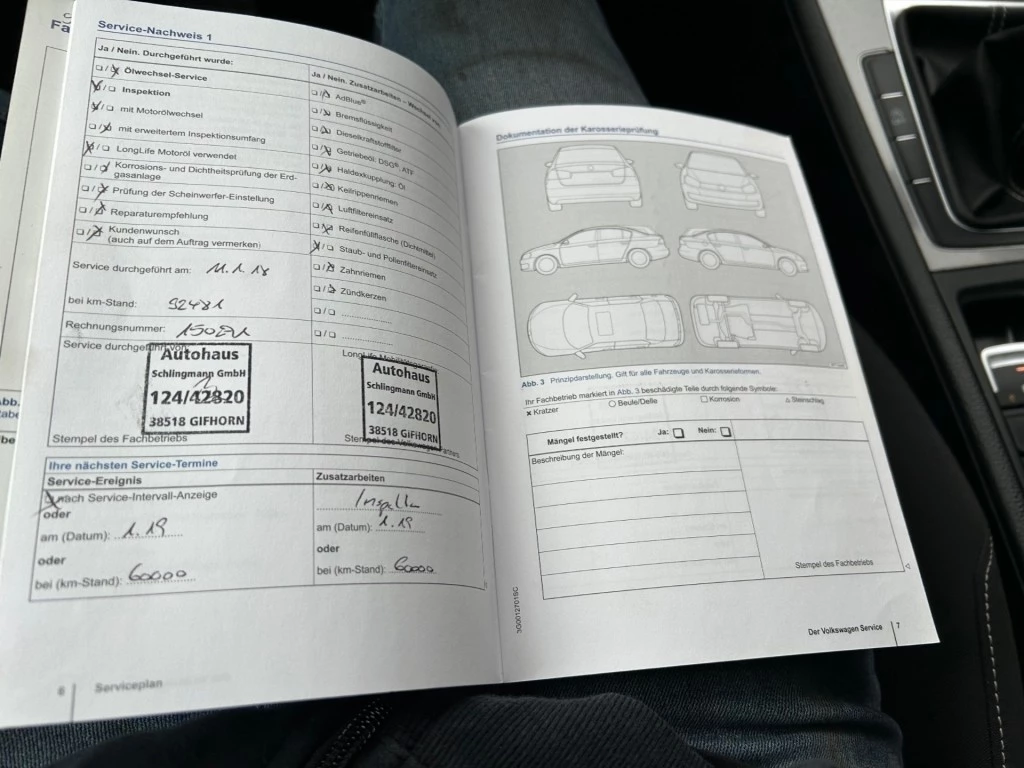 Service-Nachweis 1
Ja / Nein. Durchgeführt wurde:
Ölwechsel-Service
Inspektion
mit Motorölwechsel
mit erweitertem Inspektionsumfang
LongLife Motoröl verwendet
Korrosions- und Dichtheitsprüfung der Erd-
gasanlage
Prüfung der Scheinwerfer-Einstellung
Reparaturempfehlung
Kundenwunsch
(auch auf dem Auftrag vermerken)
Service durchgeführt am: 11.1.18
bei km-Stand:
Rechnungsnummer:
Service durchgeführt von:
Autohaus
Schlingmann GmbH
124/42820
38518 GIFHORN
Stempel des Fachbetriebs
Ja / Nein. Zusatzarbeiten
AdBlue®
Bremsflüssigkeit
Dieselkraftstofffilter
Getriebeöl: DSG®, ATF
Haldexkupplung: Öl
Keilrippenriemen
Luftfiltereinsatz
Reifenfüllflasche (Dichtmittel)
Staub- und Pollenfiltereinsatz
Zahnriemen
Zündkerzen
Autohaus
Schlingmann GmbH
124/42820
38518 GIFHORN
Stempel des Volkswagen Partners
Ihre nächsten Service-Termine
Service-Ereignis
nach Service-Intervall-Anzeige
oder
am (Datum): 1.19
oder
bei (km-Stand): 60000
Zusatzarbeiten
am (Datum): 1.19
oder
bei (km-Stand): 60000
6 Serviceplan
Dokumentation der Karosserieprüfung
Abb. 3 Prinzipdarstellung. Gilt für alle Fahrzeuge und Karosserieformen.
Ihr Fachbetrieb markiert in Abb. 3 beschädigte Teile durch folgende Symbole:
x Kratzer ○ Beule/Delle □ Korrosion △ Steinschlag
Mängel festgestellt? Ja: □ Nein: □
Beschreibung der Mängel:
Stempel des Fachbetriebs
3G0012701SC
Der Volkswagen Service 7